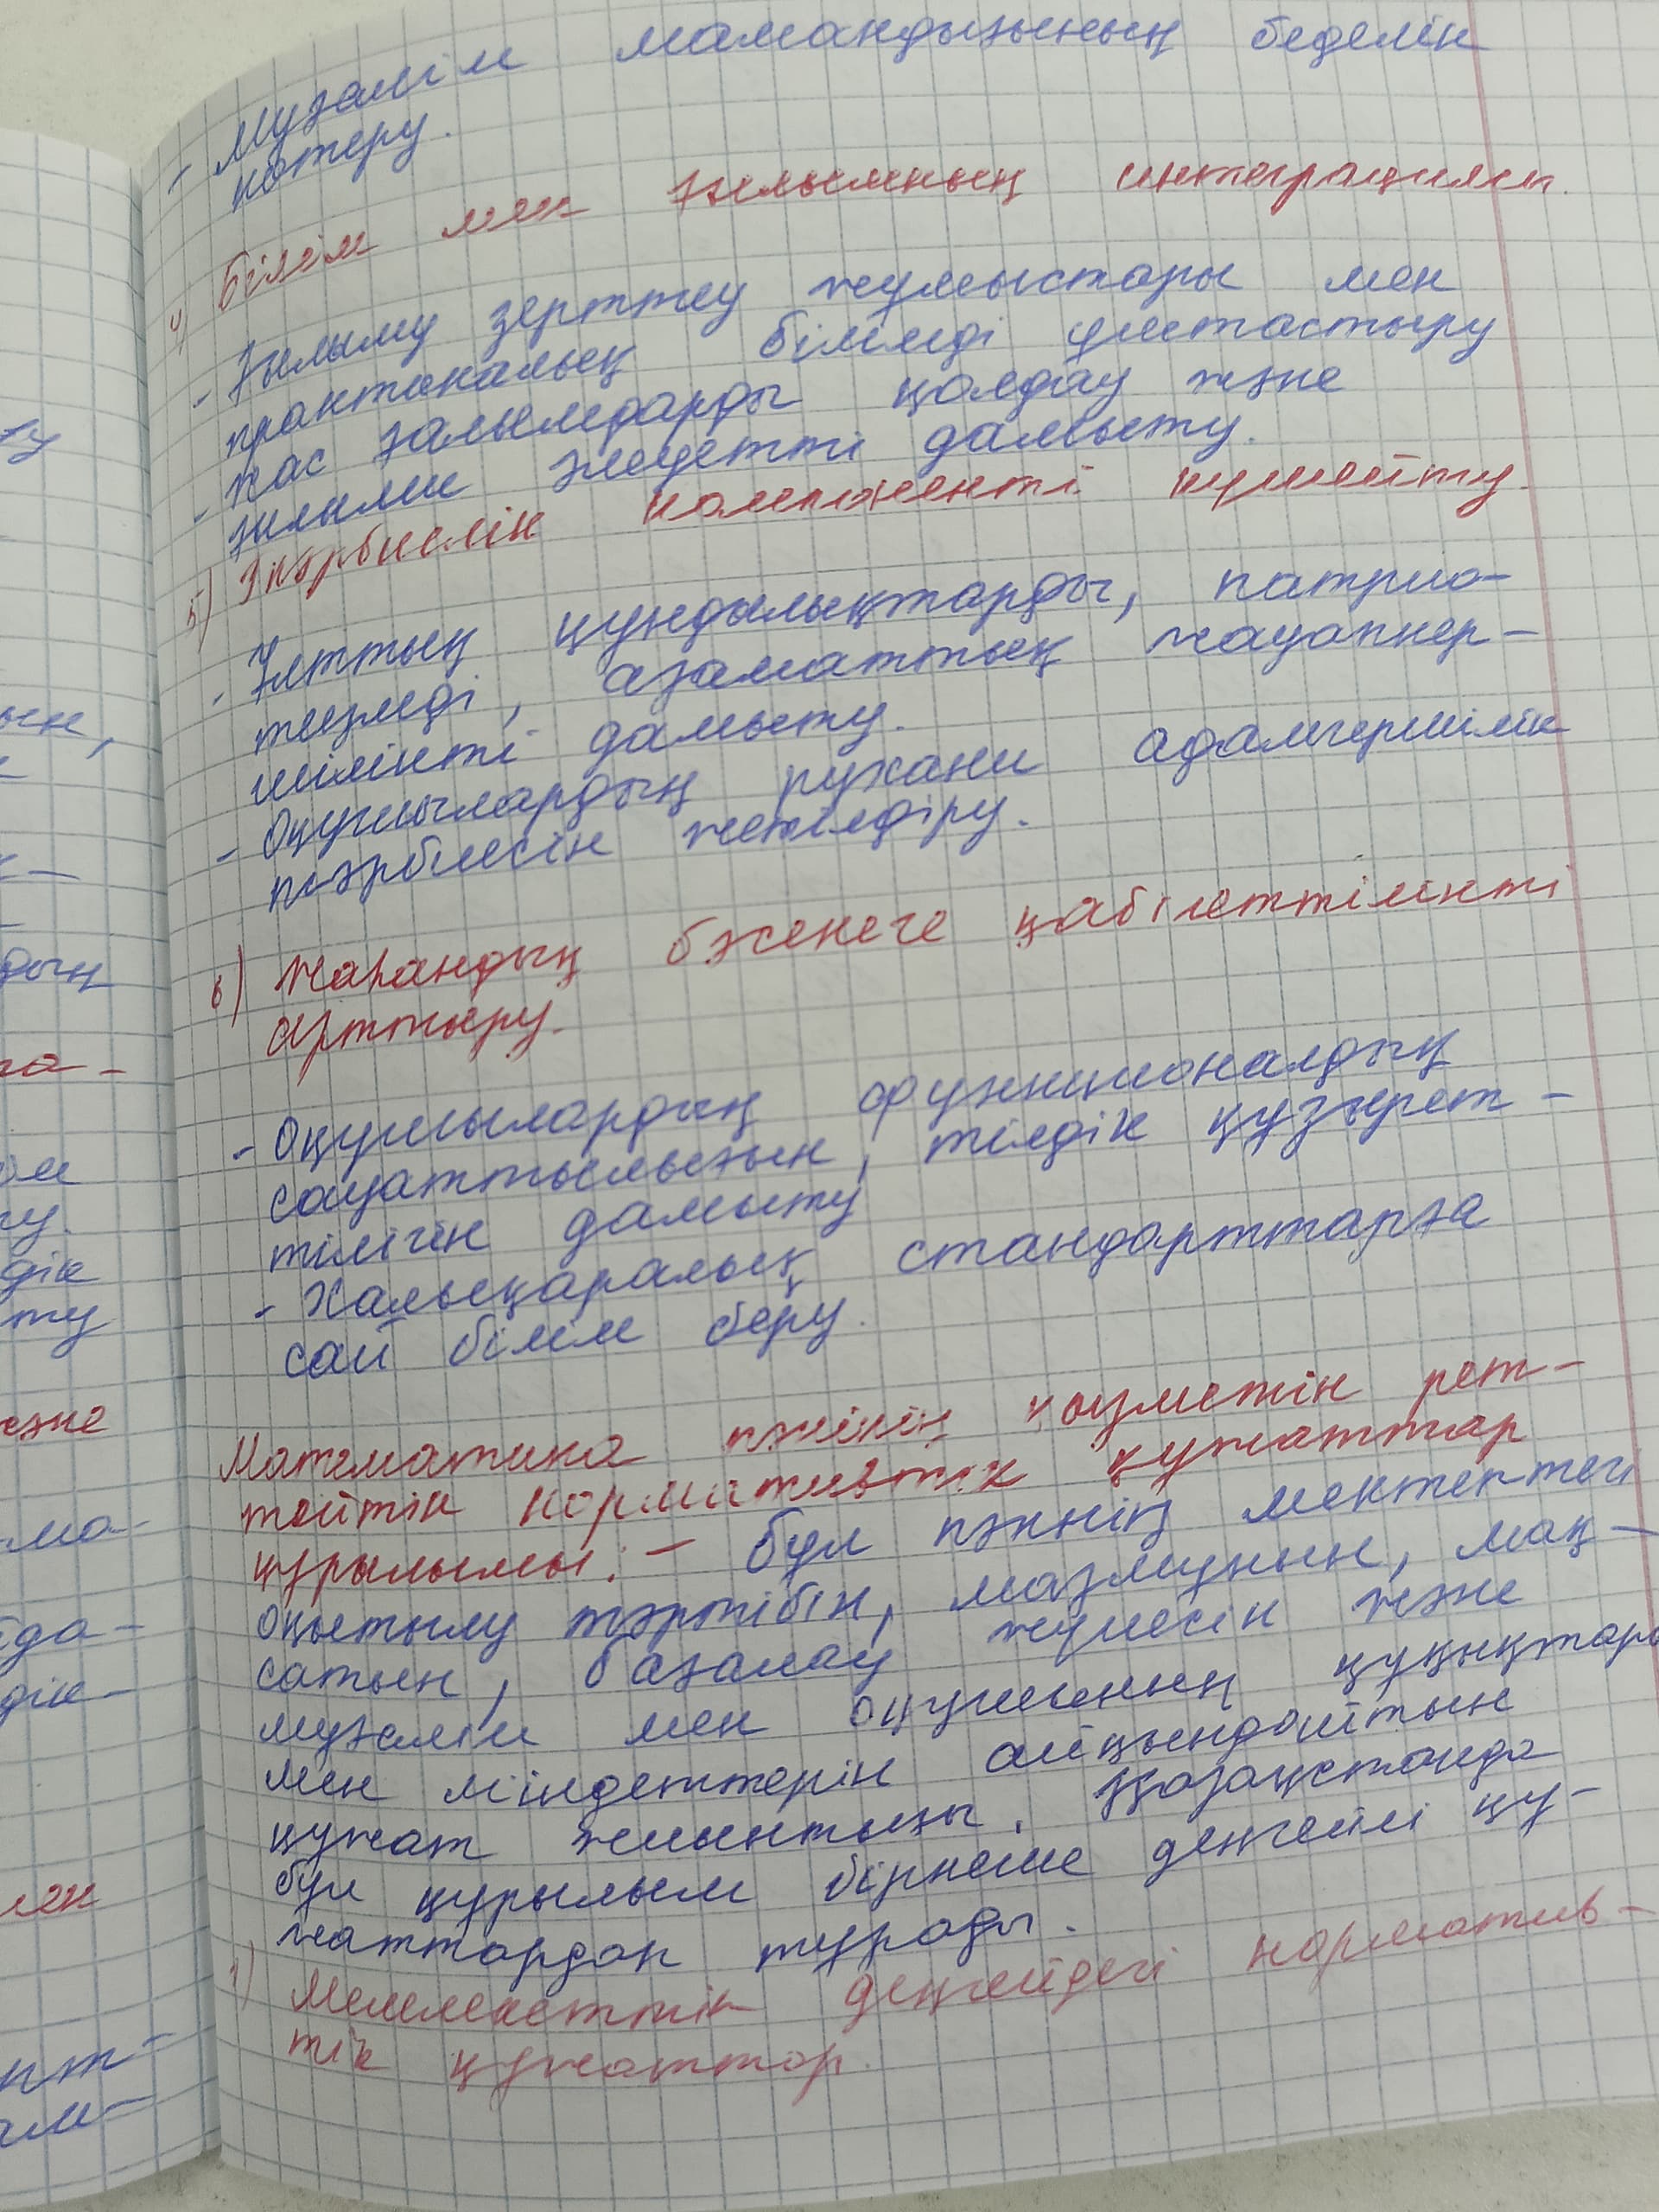 - Мұғалім мамандығының беделін
көтеру.
4) Білім мен ғылымның интеграциясы.
- Ғылыму зерттеу жұмыстары мен
практикалық білімді ұштастыру
- Жас ғалымдарды қолдау және
ғылыми әлеуетті дамыту.
5) Тәрбиелік компоненті күшейту.
- Ұлттық құндылықтарды, патрио-
тизмді, азаматтық жауапкер-
шілікті дамыту.
- Оқушылардың рухани адамгершілік
тәрбиесін жетілдіру.
6) Жаһандық бәсекеге қабілеттілікті
арттыру.
- Оқушылардың функционалдық
сауаттылығын, тілдік құзырет-
тілігін дамыту
- Халықаралық стандарттарға
сай білім беру.
Математика пәнінің қызметін рет-
тейтін нормативтік құжаттар
құрылымы: - бұл пәннің мектептегі
оқытылу тәртібін, мазмұнын, мақ-
сатын, бағалау жүйесін және
мұғалім мен оқушының құқықтары
мен міндеттерін айқындайтын
құжат жиынтығы. Қазақстанда
бұл құрылым бірнеше деңгейлі құ-
жаттардан тұрады.
1) Мемлекеттік деңгейдегі норматив-
тік құжаттар.